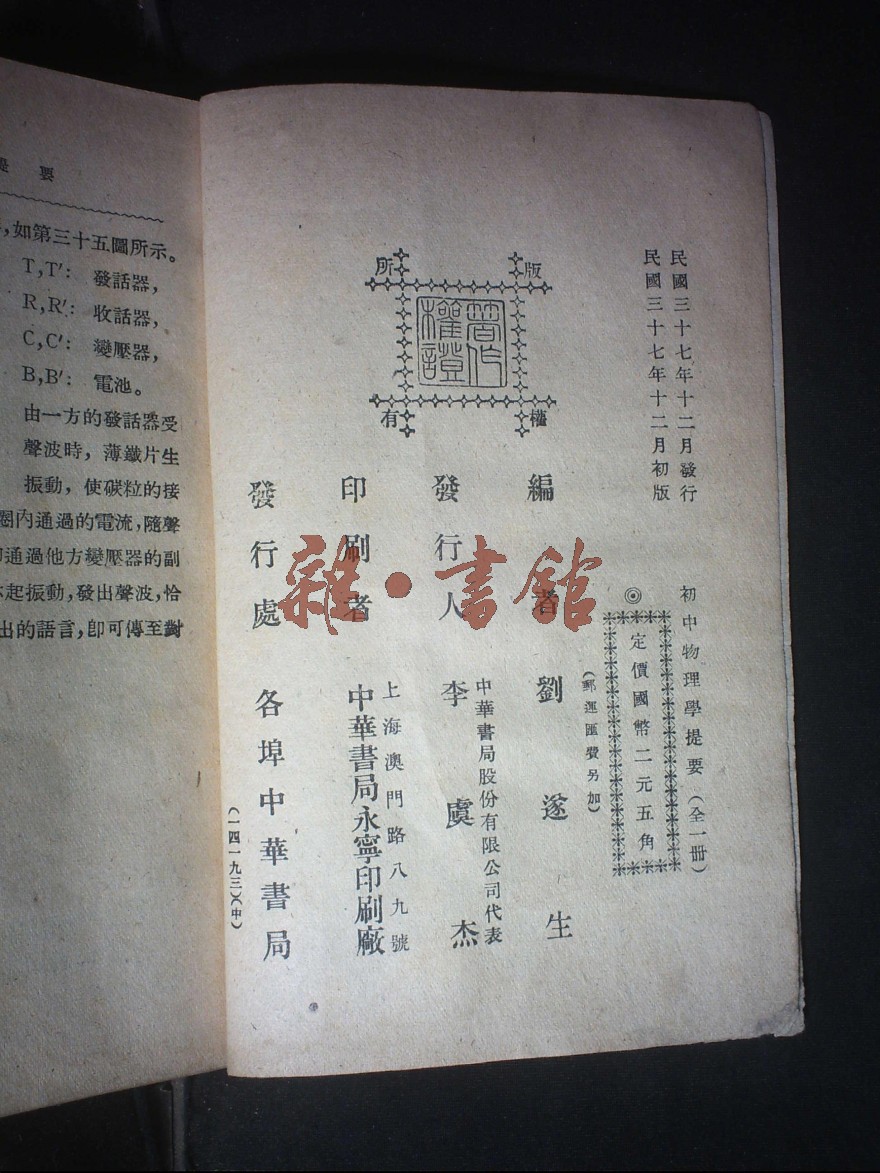 民國三十七年十二月發行
民國三十七年十二月初版
初中物理學提要(全一冊)
◎
定價國幣二元五角
(郵運匯費另加)
版權所有
著作權證
編者 劉遂生
發行人 中華書局股份有限公司代表
李虞杰
印刷者 上海澳門路八九號
中華書局永寧印刷廠
發行處 各埠中華書局
(一四一九三)(中)
雜·書館
要
如第三十五圖所示。
T,T′: 發話器,
R,R′: 收話器,
C,C′: 變壓器,
B,B′: 電池。
由一方的發話器受
聲波時,薄鐵片生
振動,使碳粒的接
圈內通過的電流,隨聲
通過他方變壓器的副
起振動,發出聲波,恰
出的語言,卽可傳至對